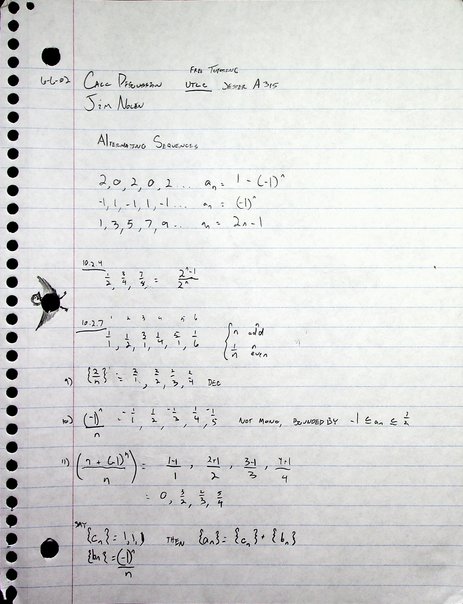 Free Tutoring
6-6-02 Calc Discussion UTLC Jester A315
Jim Nolen
Alternating Sequences
2, 0, 2, 0, 2 ... aₙ = 1 - (-1)ⁿ
-1, 1, -1, 1, -1 ... aₙ = (-1)ⁿ
1, 3, 5, 7, 9 ... aₙ = 2n-1
10.2.4
1/2, 3/4, 7/8, = (2ⁿ-1)/2ⁿ
10.2.7 1 2 3 4 5 6
1/1, 1/2, 3/1, 1/4, 5/1, 1/6 { n n odd
1/n n even
9) {2/n} = 2/1, 2/2, 2/3, 2/4 DEC
10) (-1)ⁿ/n -1/1, 1/2, -1/3, 1/4, -1/5 NOT MONO, BOUNDED BY -1 ≤ aₙ ≤ 1/2
11) ((n + (-1)ⁿ)/n) = (1-1)/1, (2+1)/2, (3-1)/3, (4+1)/4
= 0, 3/2, 2/3, 5/4
SAY
{cₙ} = 1, 1, 1 THEN {aₙ} = {cₙ} + {bₙ}
{bₙ} = (-1)ⁿ/n